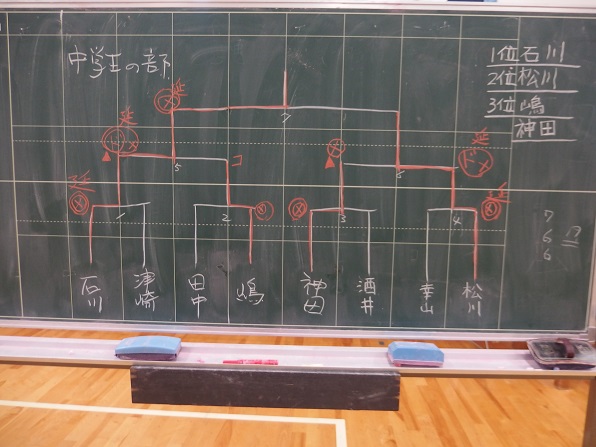 中学生の部
1位 石川
2位 松川
3位 嶋
神田
延
延
延
メ
メ
コ
メ
ドメ
7
5
延
メ
メ
メ
延
1
2
3
4
7
6
6
石川
津崎
田中
嶋
神田
酒井
幸山
松川